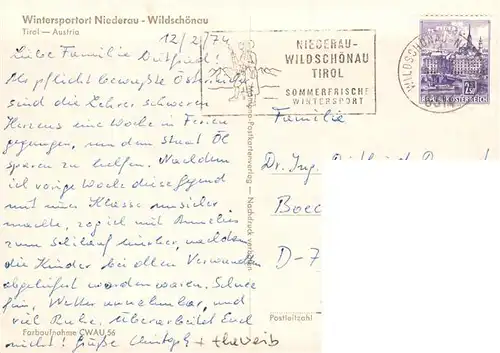 Wintersportort Niederau - Wildschönau
Tirol — Austria
12/2/74
Liebe Familie
Als pflichtbewußte Österreicher
sind die Lehrer schweren
Herzens eine Woche in Ferien
gegangen, um dem Staat Öl
sparen zu helfen. Nachdem
ich vorige Woche diese Gegend
mit einer Klasse unsicher
machte, zog ich mit
zum Schilauf hierher, nachdem
die Kinder bei allen Verwandten
abgeliefert worden waren. Schnee
fein, Wetter annehmbar, und
viel Ruhe. Überarbeitet Euch
nicht! Grüße Christoph +
Farbaufnahme CWAU 56
Postkartenverlag — Nachdruck verboten
NIEDERAU-
WILDSCHÖNAU
TIROL
SOMMERFRISCHE
WINTERSPORT
Familie
Dr. Ing.
Boec
D-7
Postleitzahl